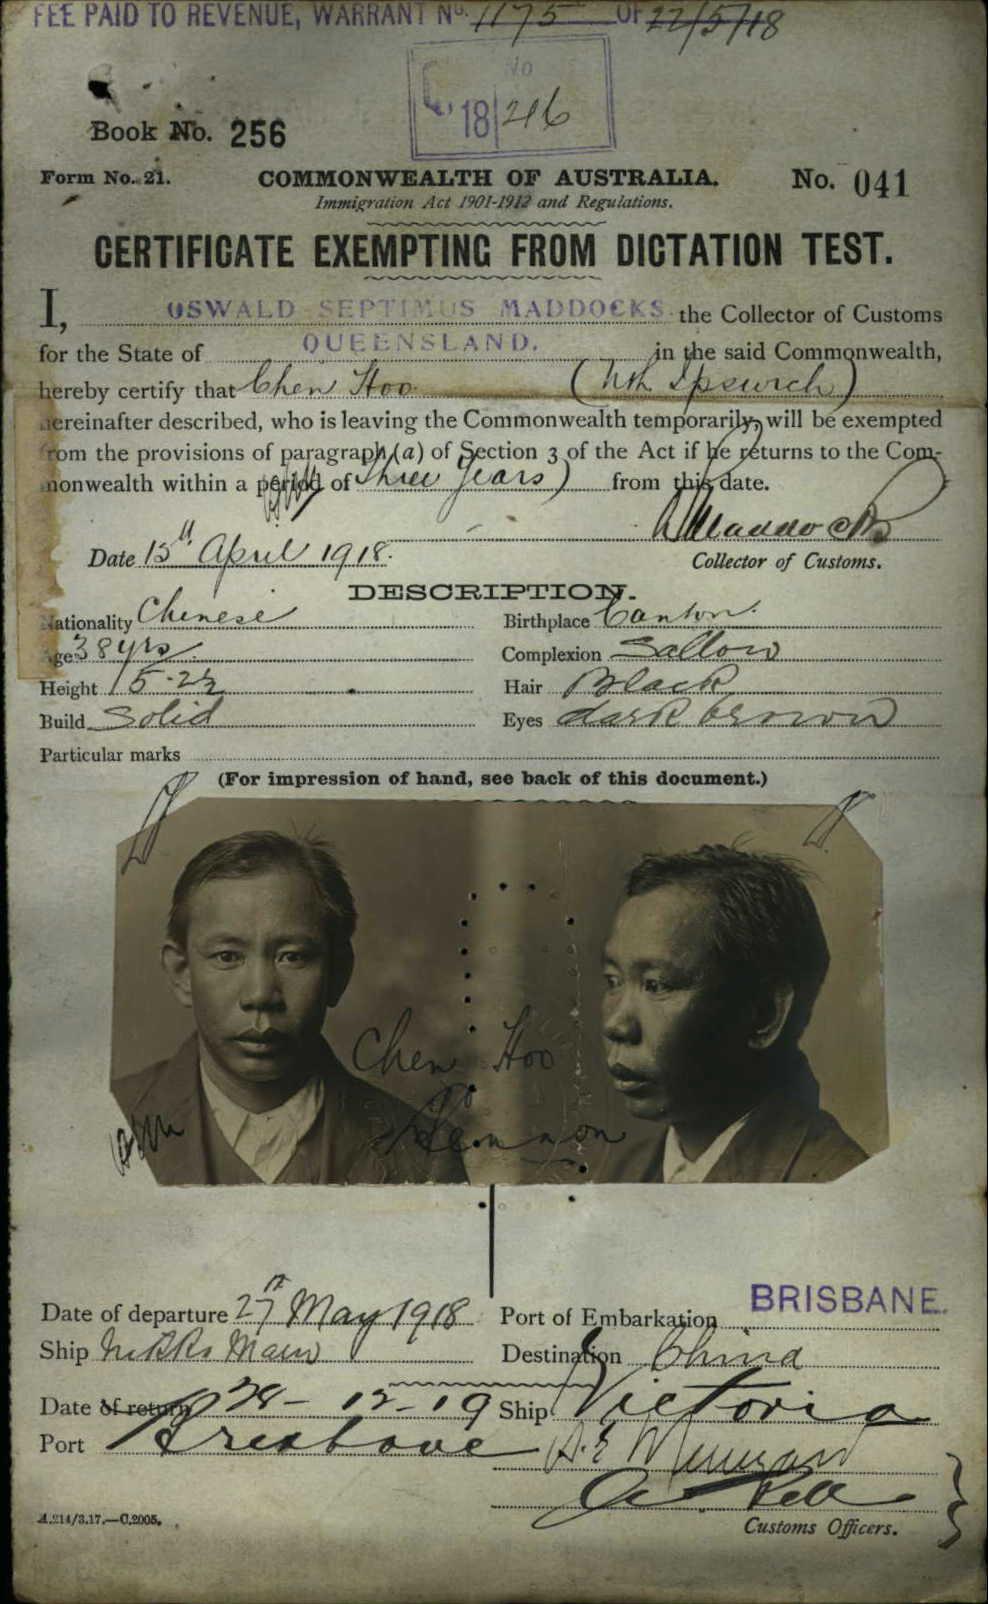 FEE PAID TO REVENUE, WARRANT No. 1175 OF 22/5/18
No
C. 18/246
Book No. 256
Form No. 21. COMMONWEALTH OF AUSTRALIA. No. 041
Immigration Act 1901-1912 and Regulations.
CERTIFICATE EXEMPTING FROM DICTATION TEST.
I, OSWALD SEPTIMUS MADDOCKS the Collector of Customs
for the State of QUEENSLAND. in the said Commonwealth,
hereby certify that Chen Hoo (Nth Ipswich)
hereinafter described, who is leaving the Commonwealth temporarily, will be exempted
from the provisions of paragraph (a) of Section 3 of the Act if he returns to the Com-
monwealth within a period of three years from this date.
Maddocks
Date 15th April 1918. Collector of Customs.
DESCRIPTION.
Nationality Chinese Birthplace Canton
Age 38 yrs Complexion Sallow
Height 5-2½ Hair Black
Build Solid Eyes dark brown
Particular marks
(For impression of hand, see back of this document.)
Chen Hoo
Date of departure 27th May 1918 Port of Embarkation BRISBANE.
Ship Nikko Maru Destination China
Date of return 28-12-19 Ship Victoria
Port Brisbane
A.214/3.17.—C.2005. Customs Officers.